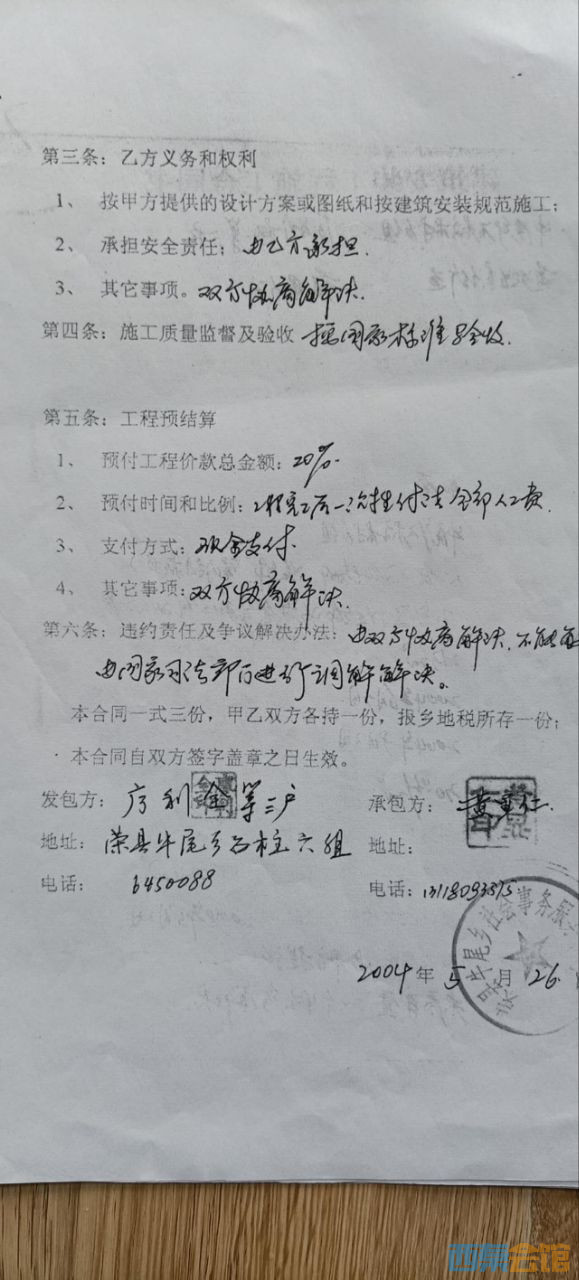 第三条：乙方义务和权利
1、 按甲方提供的设计方案或图纸和按建筑安装规范施工；
2、 承担安全责任：由乙方承担.
3、 其它事项。双方协商解决.
第四条：施工质量监督及验收 按国家标准验收.
第五条：工程预结算
1、 预付工程价款总金额：20%.
2、 预付时间和比例：工程完工后一次性付清全部人工费.
3、 支付方式：现金支付.
4、 其它事项：双方协商解决.
第六条：违约责任及争议解决办法：由双方协商解决.不能
由国家司法部门进行调解解决。
本合同一式三份，甲乙双方各持一份，报乡地税所存一份；
本合同自双方签字盖章之日生效。
发包方： 利金等三户 承包方：黄
地址：荣县牛尾乡石柱六组 地址：
电话：6450088 电话：
牛尾乡社会事务服
2004年5月26
西祠会馆